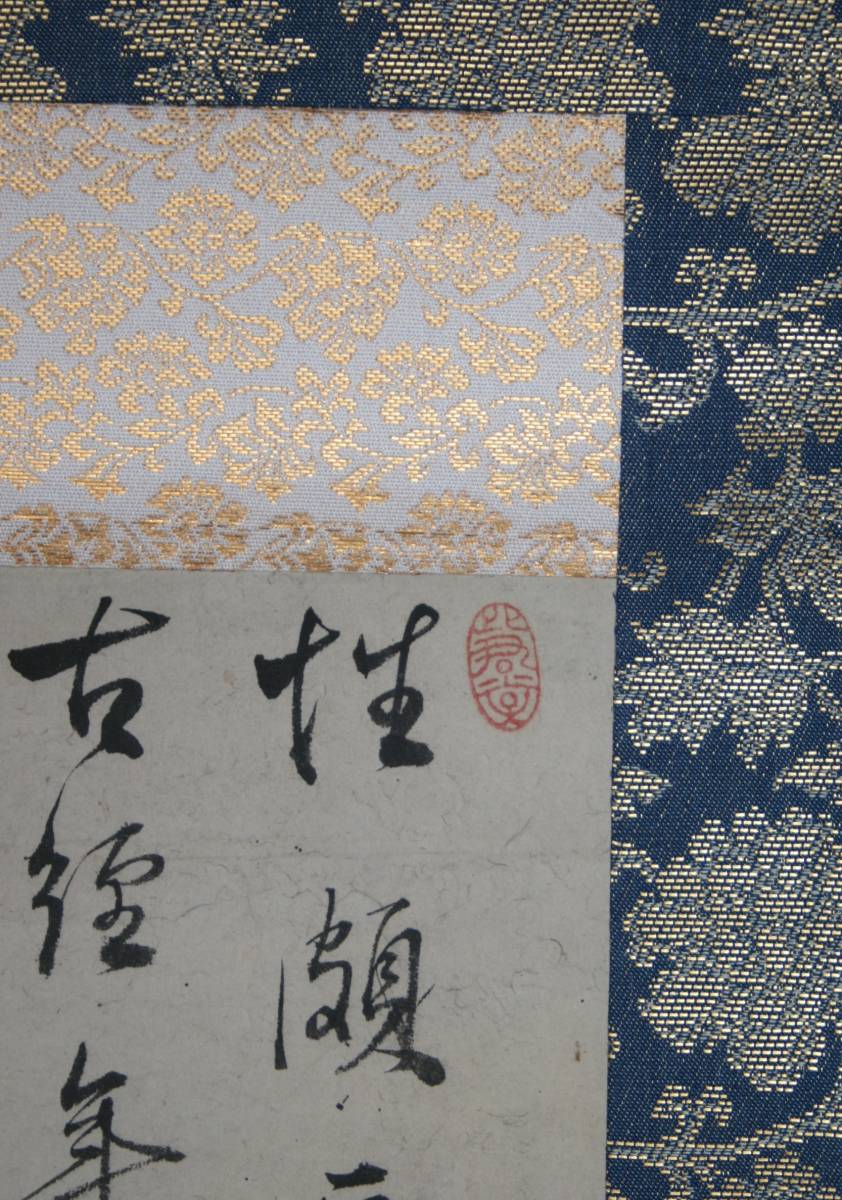 性頗
古經年